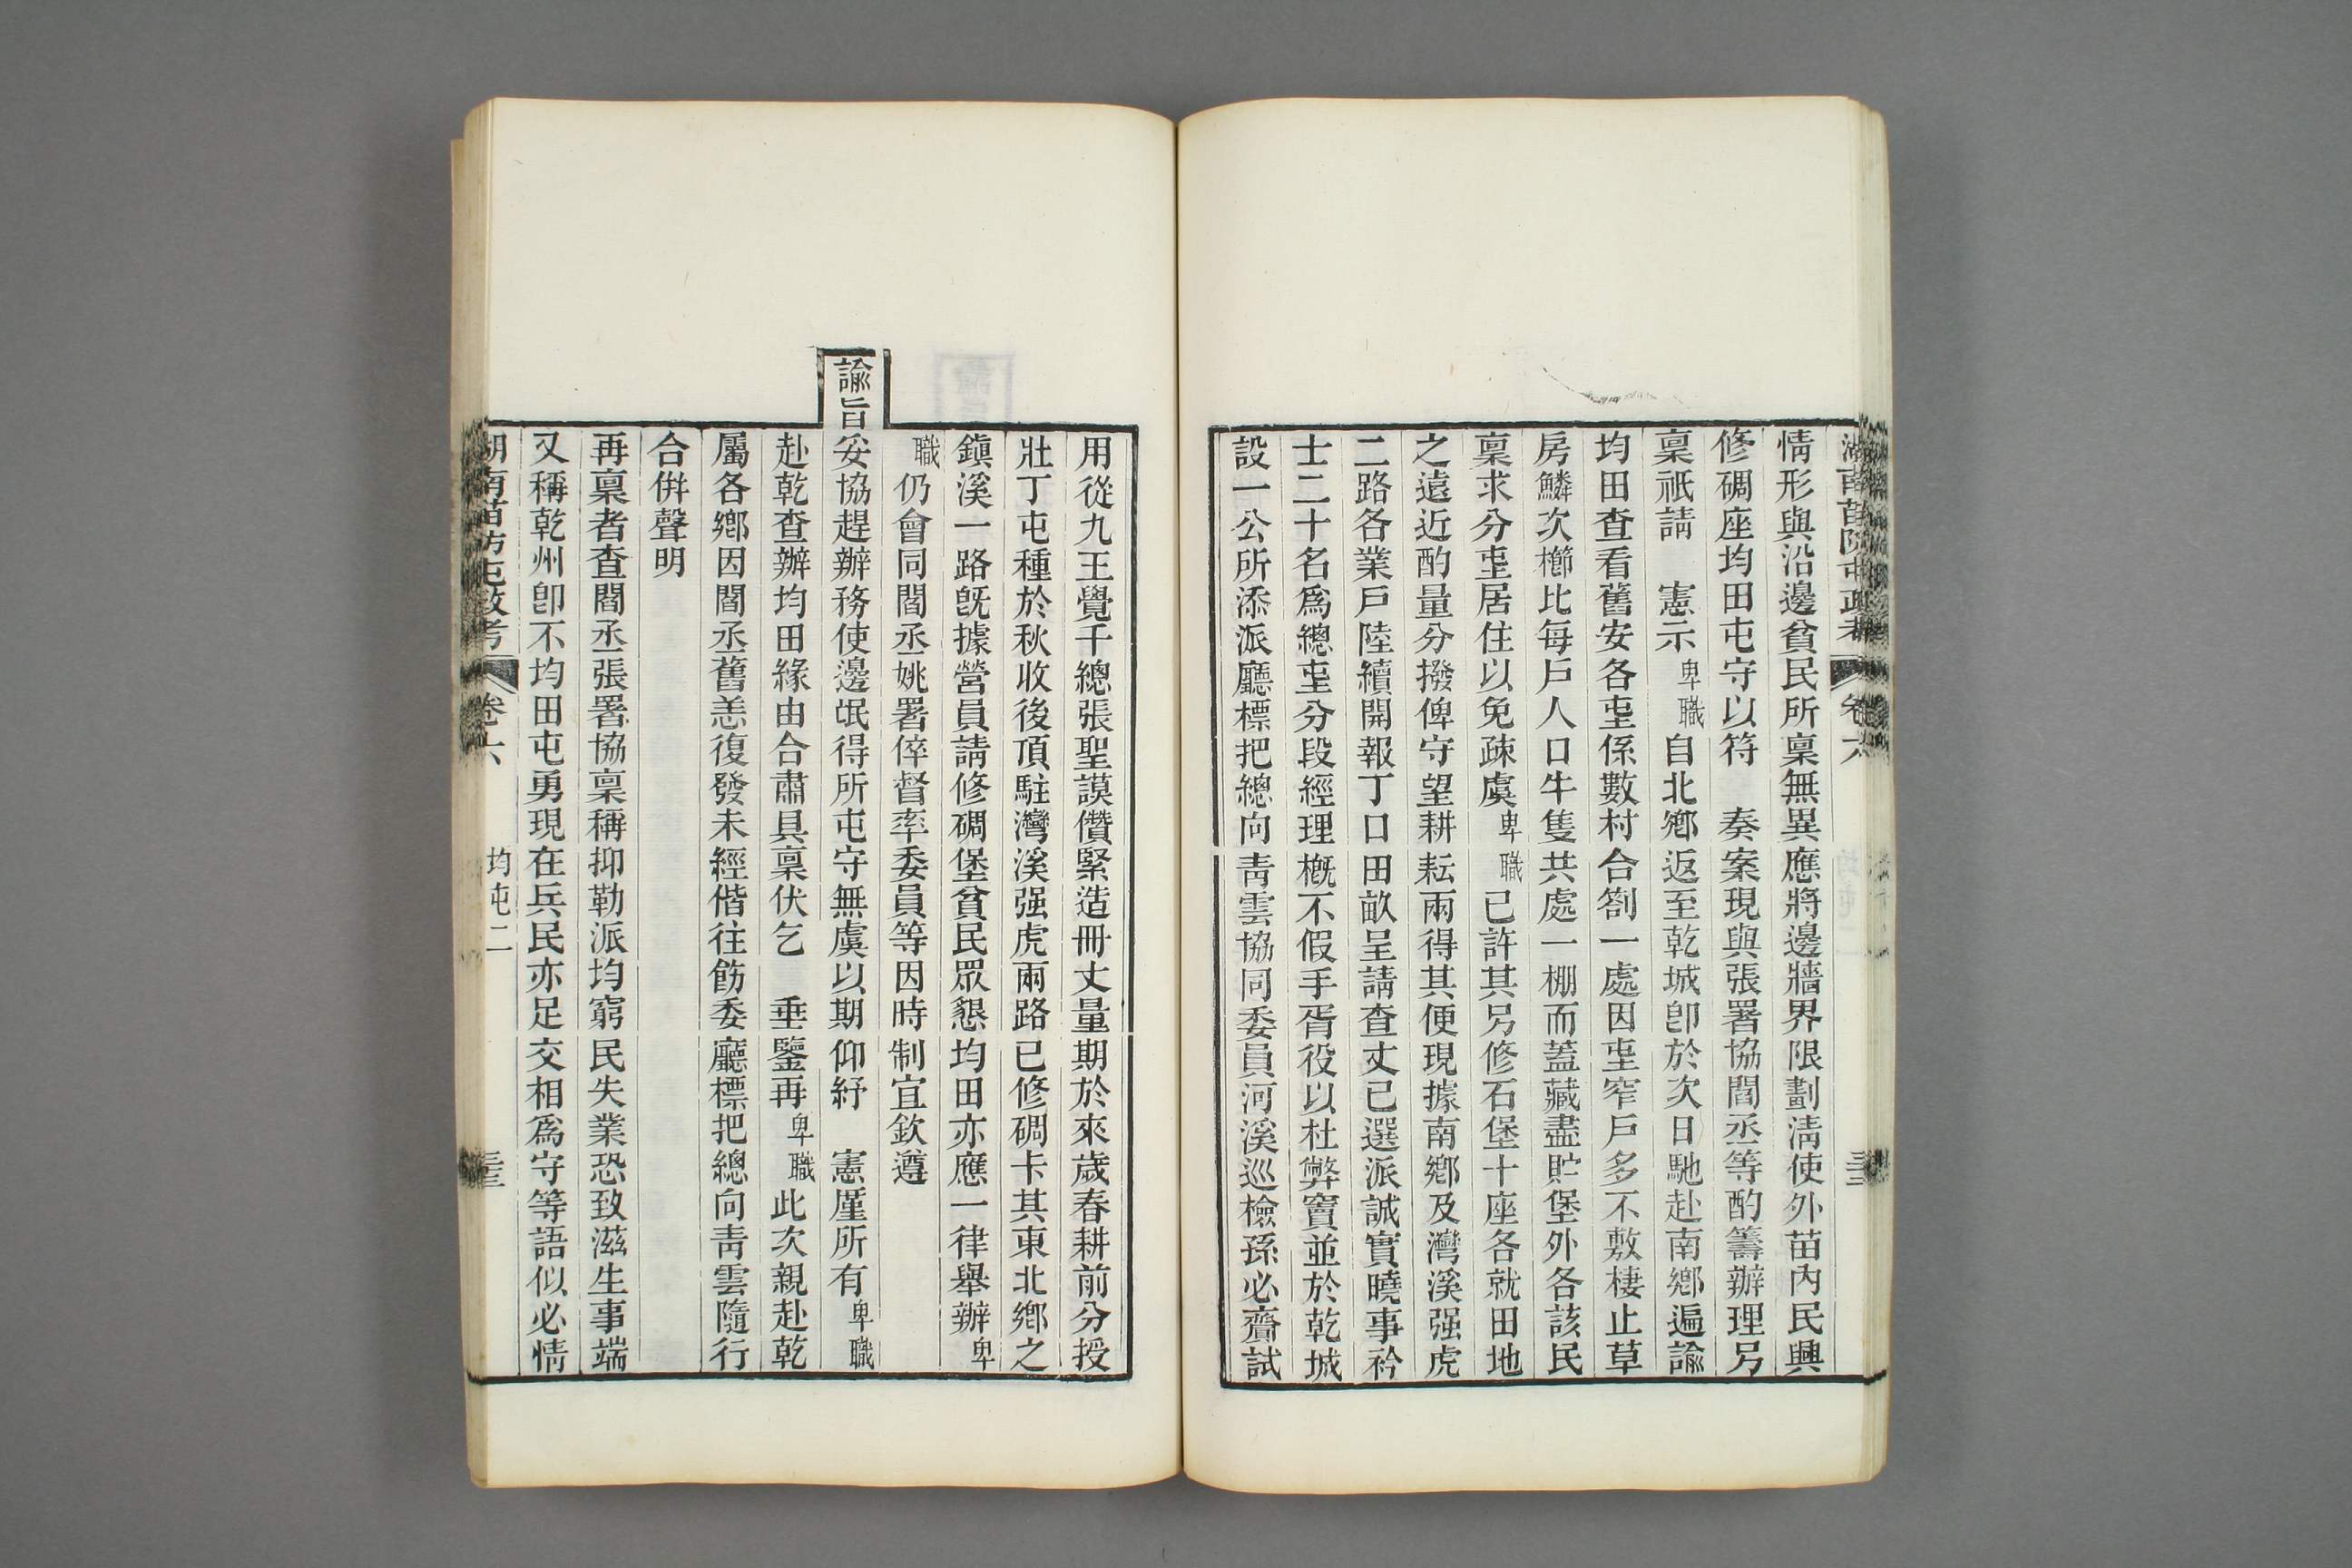 湖南苗防屯政考 卷六
情形與沿邊貧民所稟無異應將邊牆界限劃清使外苗內民興
修碉座均田屯守以符 奏案現與張署協閻丞等酌籌辦理另
稟祇請 憲示卑職自北鄉返至乾城卽於次日馳赴南鄉遍諭
均田查看舊安各𡉏係數村合劄一處因𡉏窄戶多不敷棲止草
房鱗次櫛比每戶人口牛隻共處一棚而蓋藏盡貯堡外各該民
稟求分𡉏居住以免疎虞卑職已許其另修石堡十座各就田地
之遠近酌量分撥俾守望耕耘兩得其便現據南鄉及灣溪强虎
二路各業戶陸續開報丁口田畝呈請查丈已選派誠實曉事衿
士二十名爲總𡉏分段經理槪不假手胥役以杜弊竇並於乾城
設一公所添派廳標把總向靑雲協同委員河溪巡檢孫必齋試
用從九王覺千總張聖謨儹緊造冊丈量期於來歲春耕前分授
壯丁屯種於秋收後頂駐灣溪强虎兩路已修碉卡其東北鄉之
鎭溪一路旣據營員請修碉堡貧民眾懇均田亦應一律舉辦卑
職仍會同閻丞姚署倅督率委員等因時制宜欽遵
諭旨妥協趕辦務使邊氓得所屯守無虞以期仰紓 憲厪所有卑職
赴乾查辦均田緣由合肅具稟伏乞 垂鑒再卑職此次親赴乾
屬各鄉因閻丞舊恙復發未經偕往飭委廳標把總向靑雲隨行
合倂聲明
再稟者查閻丞張署協稟稱抑勒派均窮民失業恐致滋生事端
又稱乾州卽不均田屯勇現在兵民亦足交相爲守等語似必情
湖南苗防屯政考 卷六 均屯二